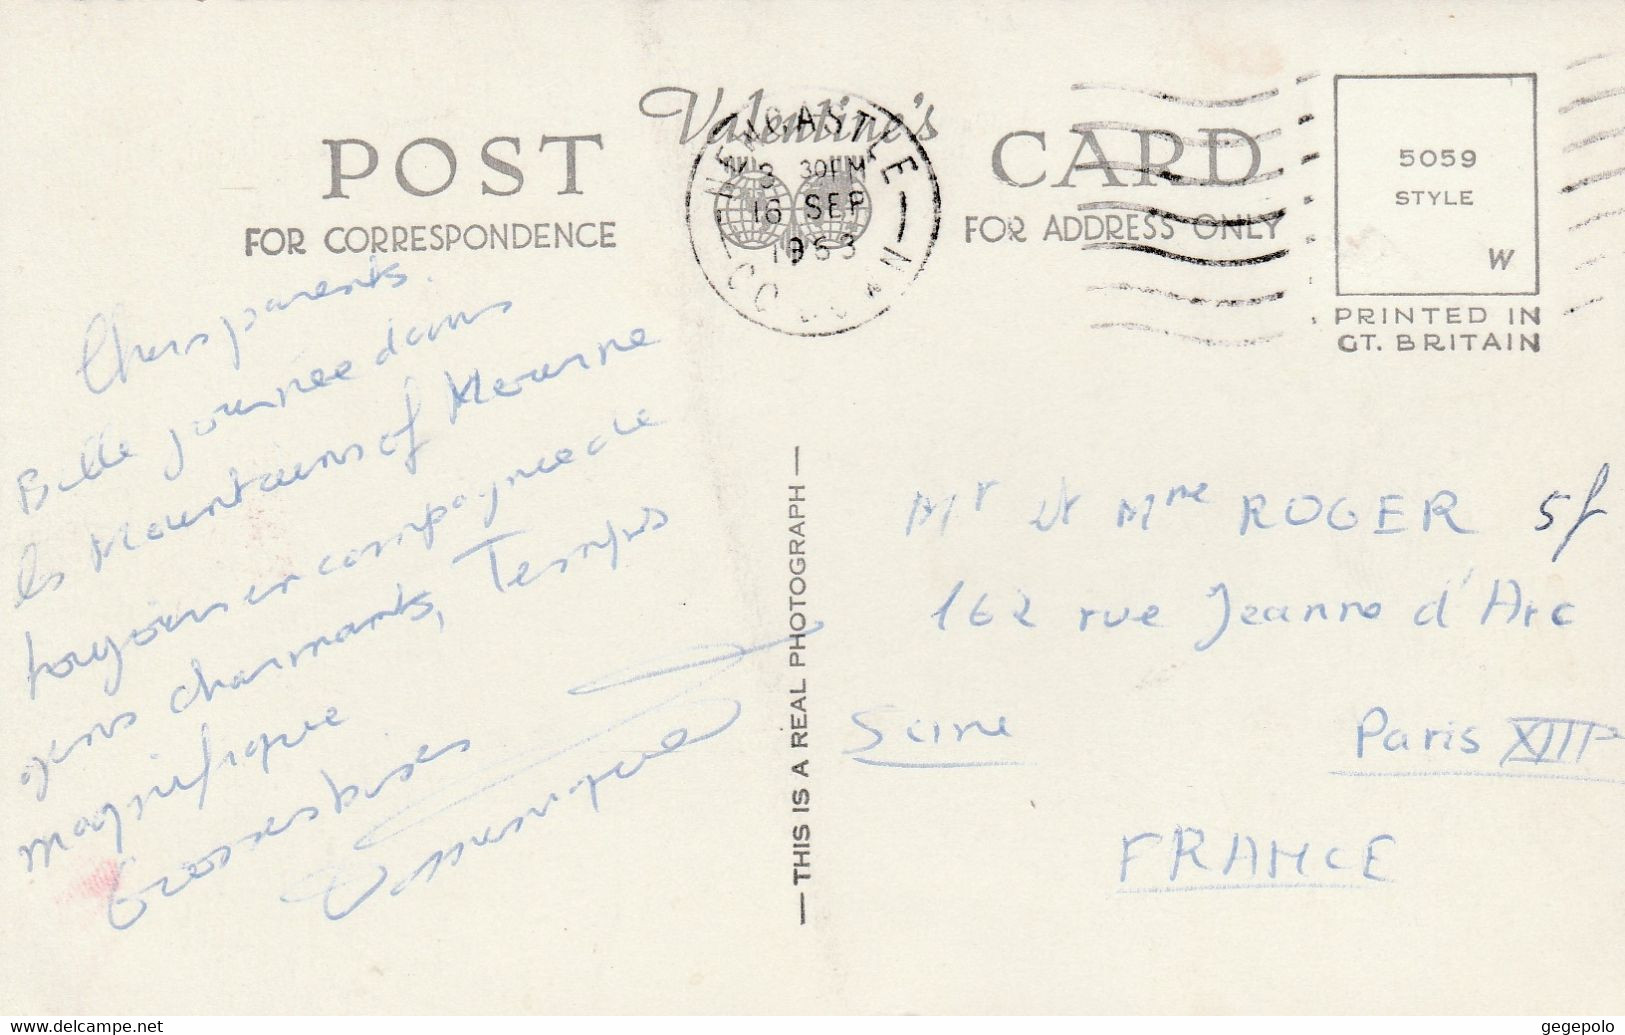 POST
Valentine's
CARD
FOR CORRESPONDENCE
FOR ADDRESS ONLY
NEWCASTLE
3 30 PM
16 SEP
1963
CO. DOWN
5059
STYLE
W
PRINTED IN
GT. BRITAIN
Chers parents.
Belle journée dans
les Mountains of Mourne
toujours en compagnie de
gens charmants, Temps
magnifique
Grosses bises
— THIS IS A REAL PHOTOGRAPH —
Mr et Mme ROGER
162 rue Jeanne d'Arc
Seine
Paris XIIIe
FRANCE
www.delcampe.net
gegepolo